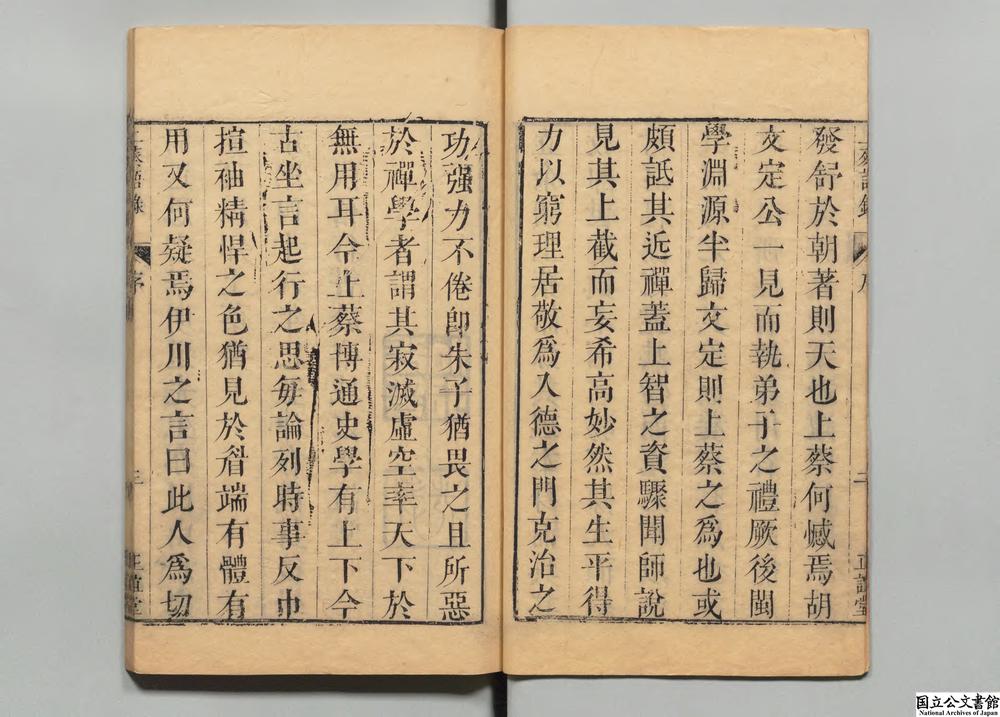 發舒於朝著則天也上蔡何憾焉胡
文定公一見而執弟子之禮厥後閩
學淵源半歸文定則上蔡之爲也或
頗詆其近禪蓋上智之資驟聞師說
見其上截而妄希高妙然其生平得
力以窮理居敬爲入德之門克治之
功强力不倦卽朱子猶畏之且所惡
於禪學者謂其寂滅虛空率天下於
無用耳今上蔡博通史學有上下今
古坐言起行之思每論列時事反巾
揎袖精悍之色猶見於眉端有體有
用又何疑焉伊川之言曰此人爲切
上蔡語錄
序
二
正誼堂
上蔡語錄
序
三
正誼堂
国立公文書館
National Archives of Japan